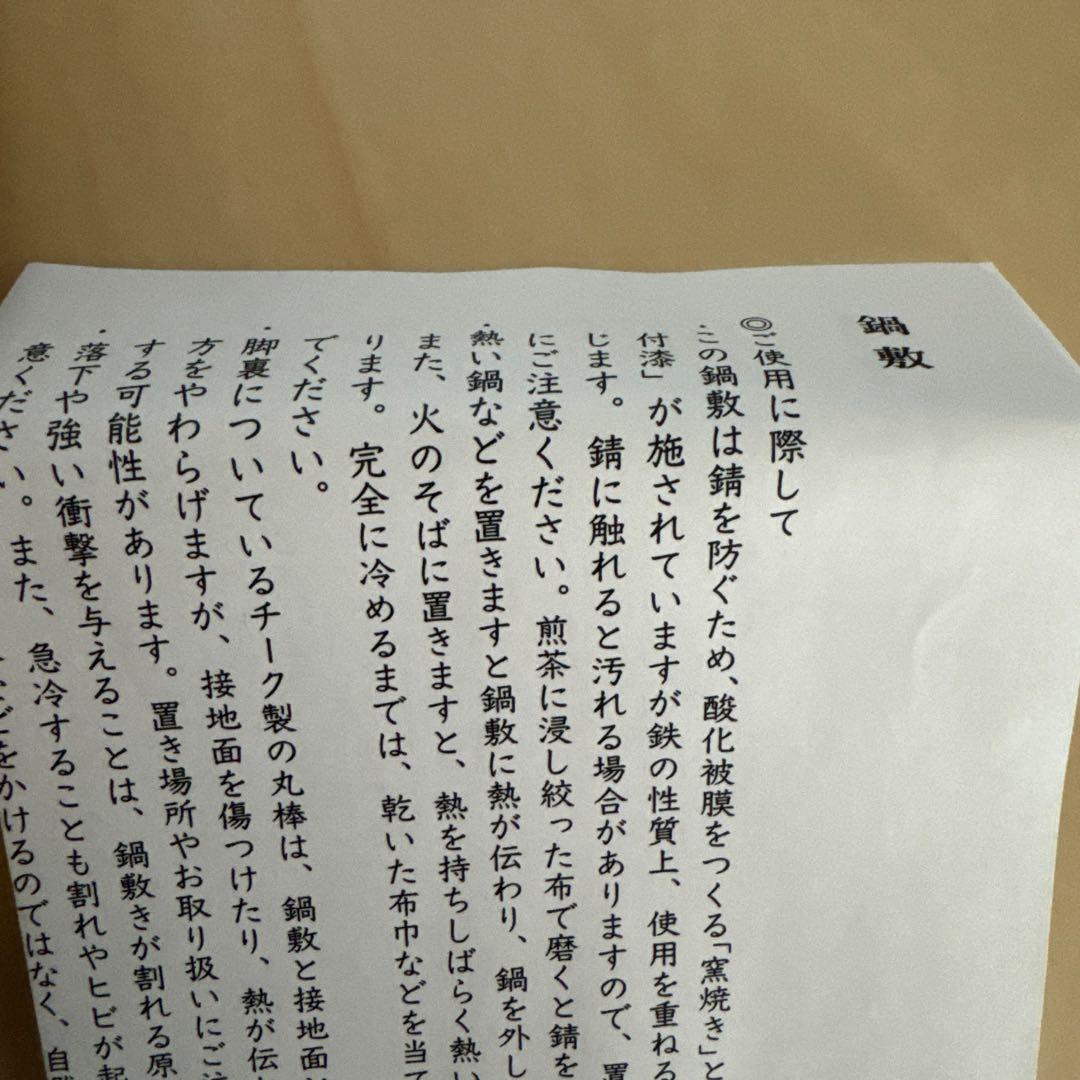 鍋敷
◎ご使用に際して
・この鍋敷は錆を防ぐため、酸化被膜をつくる「窯焼き」と
付漆」が施されていますが鉄の性質上、使用を重ねる
じます。錆に触れると汚れる場合がありますので、置
にご注意ください。煎茶に浸し絞った布で磨くと錆を
・熱い鍋などを置きますと鍋敷に熱が伝わり、鍋を外し
また、火のそばに置きますと、熱を持ちしばらく熱い
ります。完全に冷めるまでは、乾いた布巾などを当て
でください。
・脚裏についているチーク製の丸棒は、鍋敷と接地面
方をやわらげますが、接地面を傷つけたり、熱が伝
する可能性があります。置き場所やお取り扱いにご注
・落下や強い衝撃を与えることは、鍋敷きが割れる原
意ください。また、急冷することも割れやヒビが起
をかけるのではなく、自